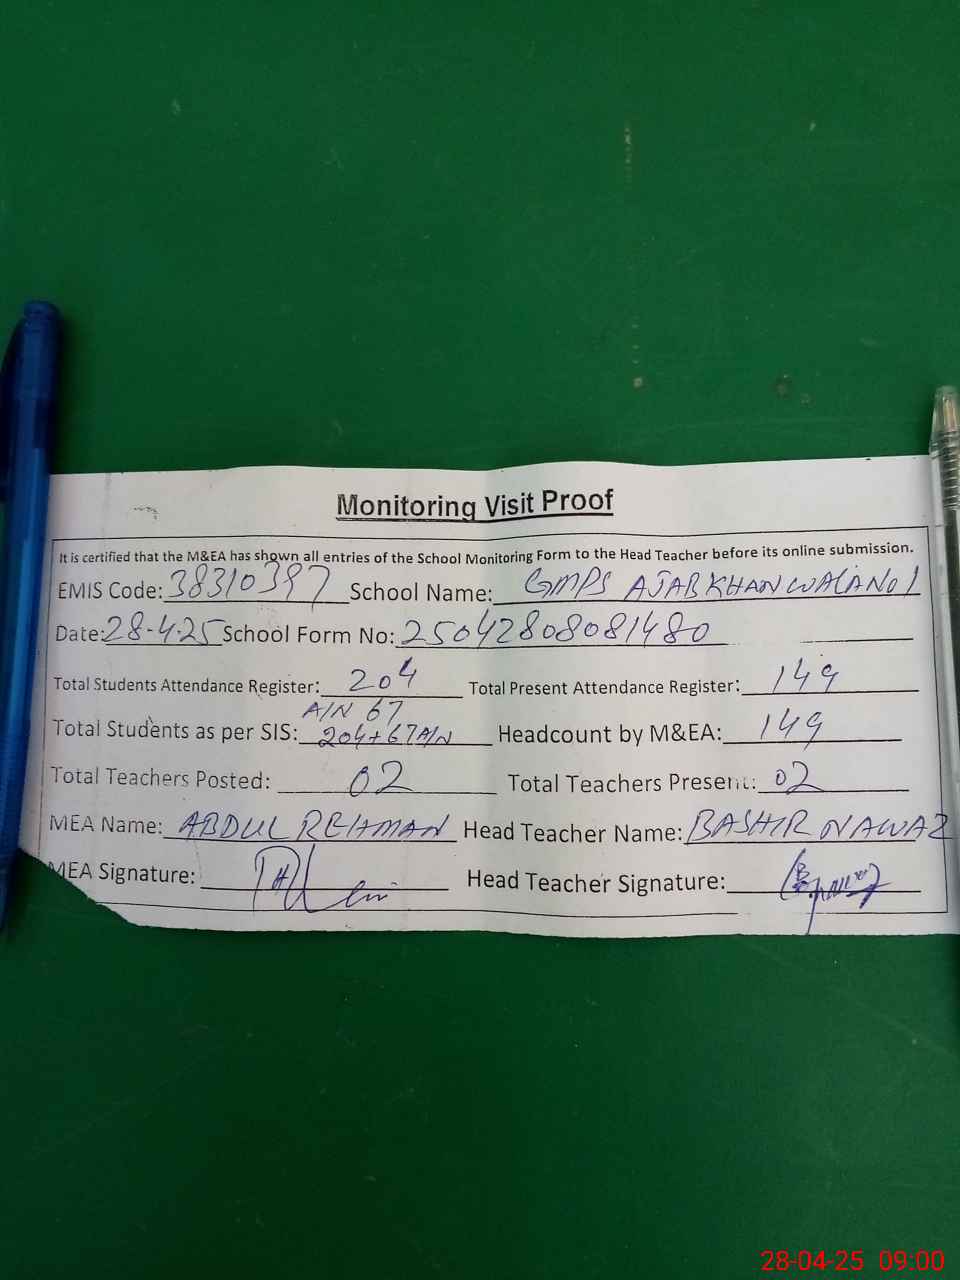 Monitoring Visit Proof
It is certified that the M&EA has shown all entries of the School Monitoring Form to the Head Teacher before its online submission.
EMIS Code: 38310397 School Name: GMPS AJAB KHAN WALA NO 1
Date: 28-4-25 School Form No: 25042808081480
Total Students Attendance Register: 204 Total Present Attendance Register: 149
A/N 67
Total Students as per SIS: 204+67A/N Headcount by M&EA: 149
Total Teachers Posted: 02 Total Teachers Present: 02
MEA Name: ABDUL REHMAN Head Teacher Name: BASHIR NAWAZ
MEA Signature: Head Teacher Signature:
28-04-25 09:00